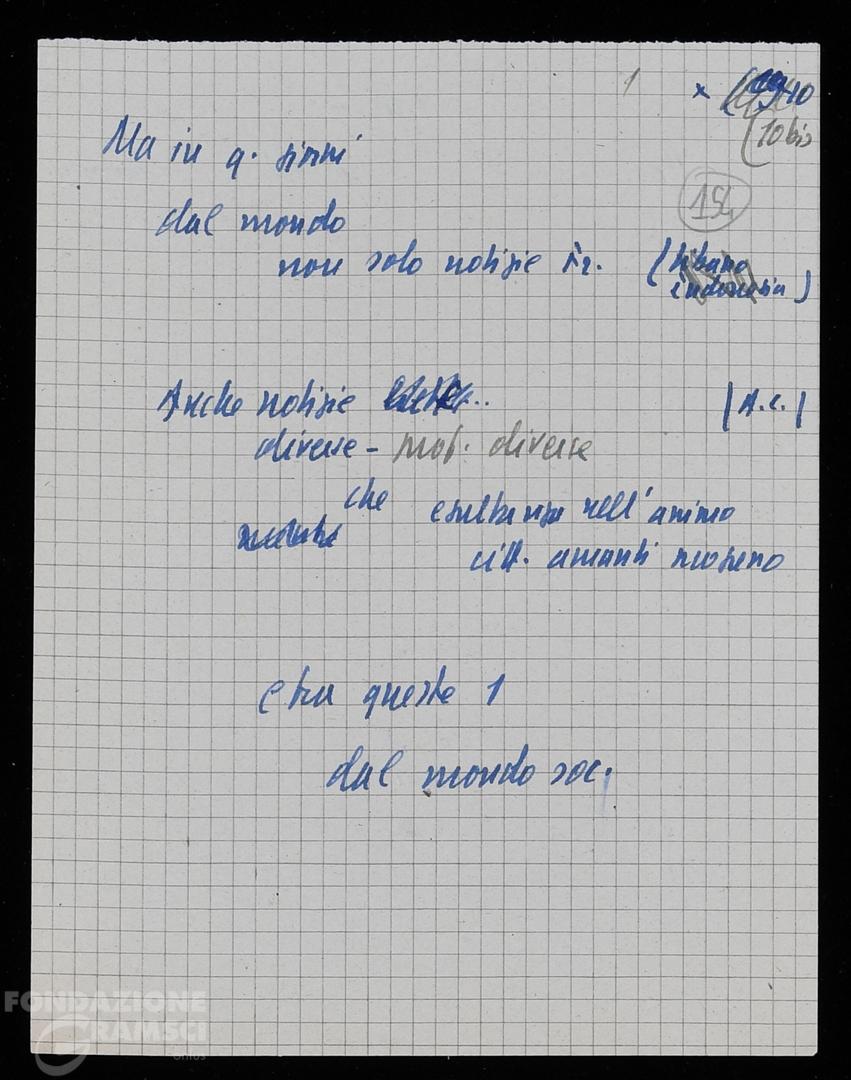 1 x 10
(10 bis
Ma in q. giorni
154
dal mondo
non solo notizie tr. (Libano
indonesia)
Anche notizie |A.C.|
diverse - mot. diverse
che esultanza nell'animo
citt. amanti
e tra queste 1
dal mondo soc.
FONDAZIONE
GRAMSCI
onlus